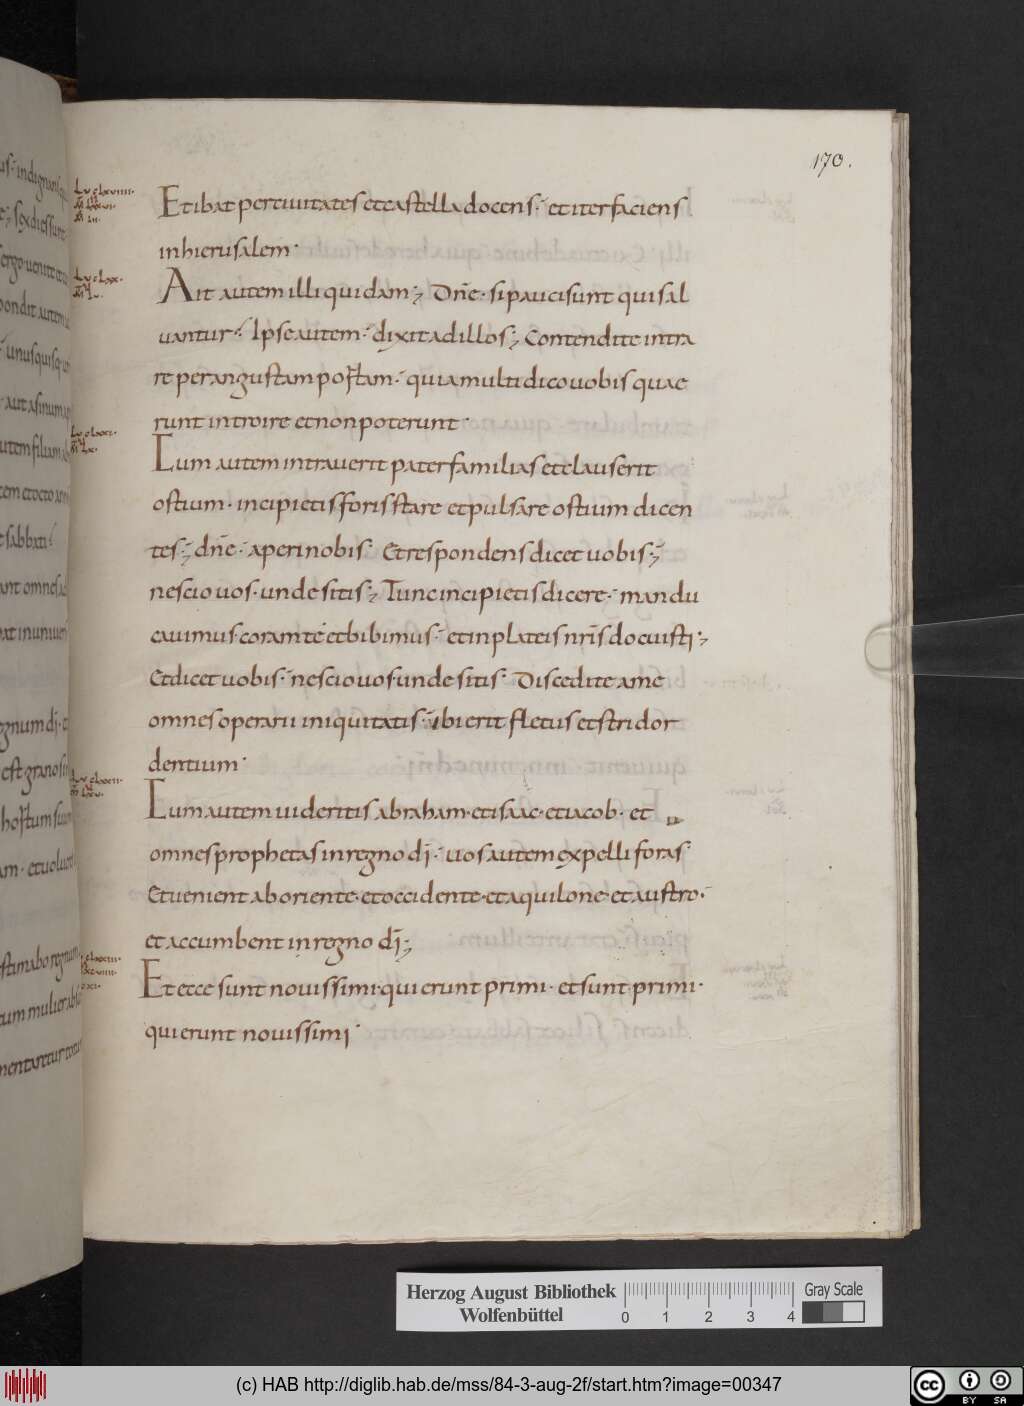 170.
Et ibat per ciuitates et castella docens. et iter faciens
in hierusalem.
Ait autem illi quidam; Dn̄e. si pauci sunt qui sal
uantur. Ipse autem. dixit ad illos; Contendite intra
re per angustam portam. quia multi dico uobis quae
runt introire et non poterunt.
Cum autem intrauerit pater familias et clauserit
ostium. incipietis foris stare et pulsare ostium dicen
tes; dn̄e. aperi nobis. Et respondens dicet uobis;
nescio uos. unde sitis; Tunc incipietis dicere. mandu
cauimus. coram te et bibimus. et in plateis nr̄is docuisti;
Et dicet uobis. nescio uos unde sitis. Discedite a me
omnes operarii iniquitatis. ibi erit fletus et stridor
dentium.
Cum autem uideritis abraham. et isaac. et iacob. et
omnes prophetas in regno dī. uos autem expelli foras.
Et uenient ab oriente. et occidente. et aquilone. et austro.
et accumbent in regno dī;
Et ecce sunt nouissimi. qui erunt primi. et sunt primi.
qui erunt nouissimi.
Herzog August Bibliothek
Wolfenbüttel
0 1 2 3 4
Gray Scale
(c) HAB http://diglib.hab.de/mss/84-3-aug-2f/start.htm?image=00347
cc BY SA